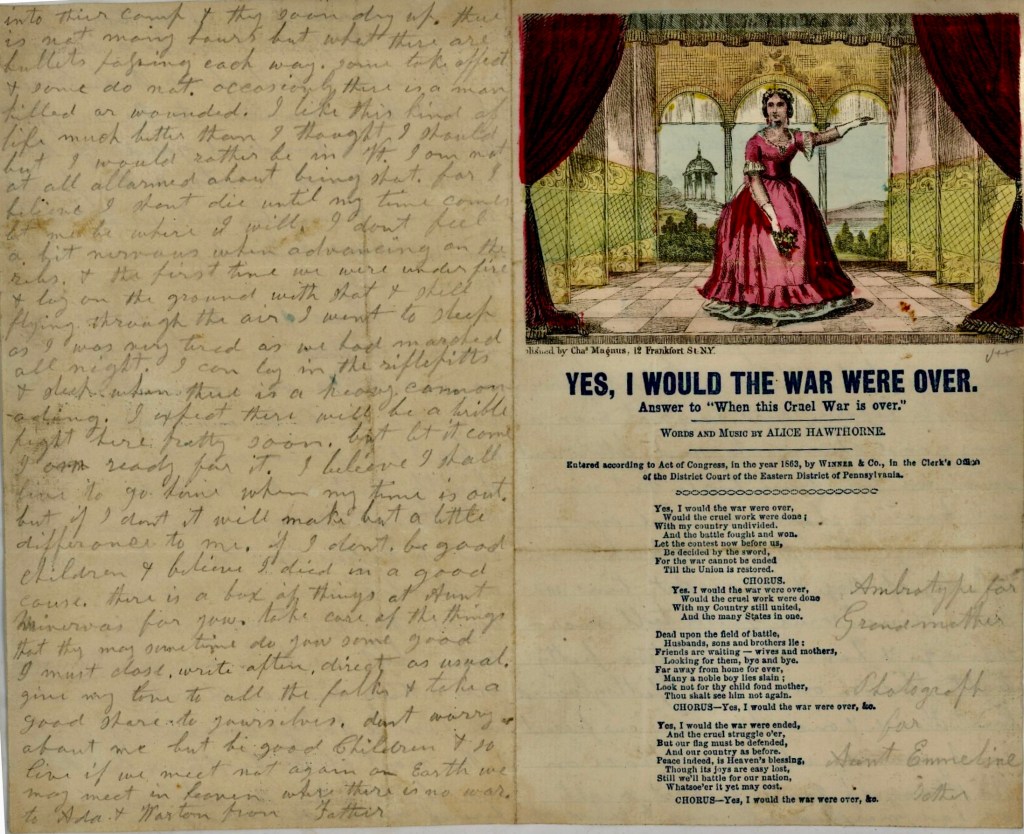 into thier camp & they soon dry up. there
is not many hours but what there are
bullets passing each way. some take effect
& some do not. occasionly there is a man
killed or wounded. I like this kind of
life much better than I thought I should
but I would rather be in Vt. I am not
at all allarmed about being shot. for I
believe I shant die until my time comes
let me be where I will. I dont feel
a bit nervous when advancing on the
rebs. & the first time we were under fire
& lay on the ground with shot & shell
flying through the air I went to sleep
as I was very tired as we had marched
all night. I can lay in the riflepitts
& sleep when there is a heavy cannon
ading. I expect there will be a trible
fight here pretty soon. but let it come
I am ready for it. I believe I shall
live to go home when my time is out.
but if I dont it will make but a little
differance to me. if I dont. be good
children & believe I died in a good
cause. there is a box of things at Aunt
Minervas for you. take care of the things
that they may sometime do you some good
I must close. write often. direct as usual.
give my love to all the folks & take a
good share to yourselves. dont worry
about me but be good Children & so
live if we meet not again on Earth we
may meet in heaven where there is no war.
to Ada & Warton from Father
lished by Chas Magnus, 12 Frankfort St. N.Y.
YES, I WOULD THE WAR WERE OVER.
Answer to "When this Cruel War is over."
WORDS AND MUSIC BY ALICE HAWTHORNE.
Entered according to Act of Congress, in the year 1863, by WINNER & Co., in the Clerk's Office
of the District Court of the Eastern District of Pennsylvania.
Yes, I would the war were over,
Would the cruel work were done;
With my country undivided.
And the battle fought and won.
Let the contest now before us,
Be decided by the sword,
For the war cannot be ended
Till the Union is restored.
CHORUS.
Yes. I would the war were over,
Would the cruel work were done
With my Country still united,
And the many States in one.
Dead upon the field of battle,
Husbands, sons and brothers lie;
Friends are waiting — wives and mothers,
Looking for them, bye and bye.
Far away from home for ever,
Many a noble boy lies slain;
Look not for thy child fond mother,
Thou shalt see him not again.
CHORUS—Yes, I would the war were over, &c.
Yes, I would the war were ended,
And the cruel struggle o'er,
But our flag must be defended,
And our country as before.
Peace indeed, is Heaven's blessing,
Though its joys are easy lost,
Still we'll battle for our nation,
Whatsoe'er it yet may cost.
CHORUS—Yes, I would the war were over, &c.
Ambrotype for
Grandmother
Photograph
for
Aunt Emmeline
Father